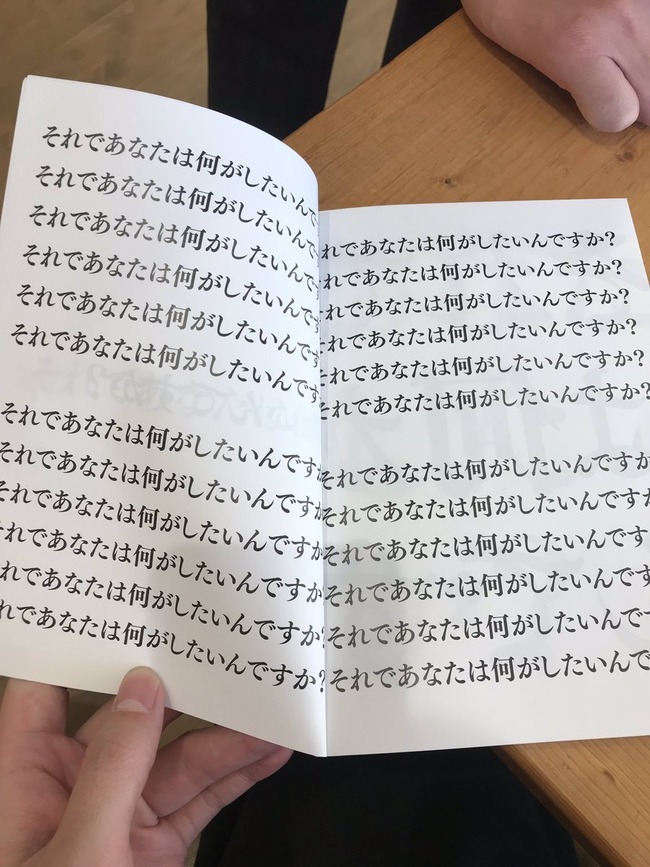 それであなたは何がしたいんで
それであなたは何がしたいんで
それであなたは何がしたいんです
それであなたは何がしたいんです
それであなたは何がしたいんです
それであなたは何がしたいんです
それであなたは何がしたいんですか
それであなたは何がしたいんですか
それであなたは何がしたいんですか
それであなたは何がしたいんですか
れであなたは何がしたいんですか?
れであなたは何がしたいんですか?
れであなたは何がしたいんですか?
れであなたは何がしたいんですか?
れであなたは何がしたいんですか?
れであなたは何がしたいんですか?
それであなたは何がしたいんですか?
それであなたは何がしたいんですか?
それであなたは何がしたいんですか
それであなたは何がしたいんですか
それであなたは何がしたいんです
それであなたは何がしたいんです
それであなたは何がしたいんで
それであなたは何がしたいんで